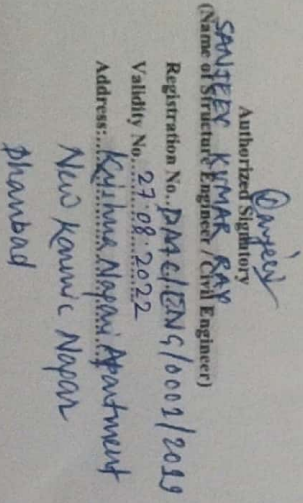 Sanjeev
Authorized Signatory
SANJEEV KUMAR RAY
(Name of Structure Engineer / Civil Engineer)
Registration No. DMC/ENG/0001/2019
Validity No. 27.08.2022
Address:.. Krishna Nagari Apartment
New Karmic Nagar
Dhanbad